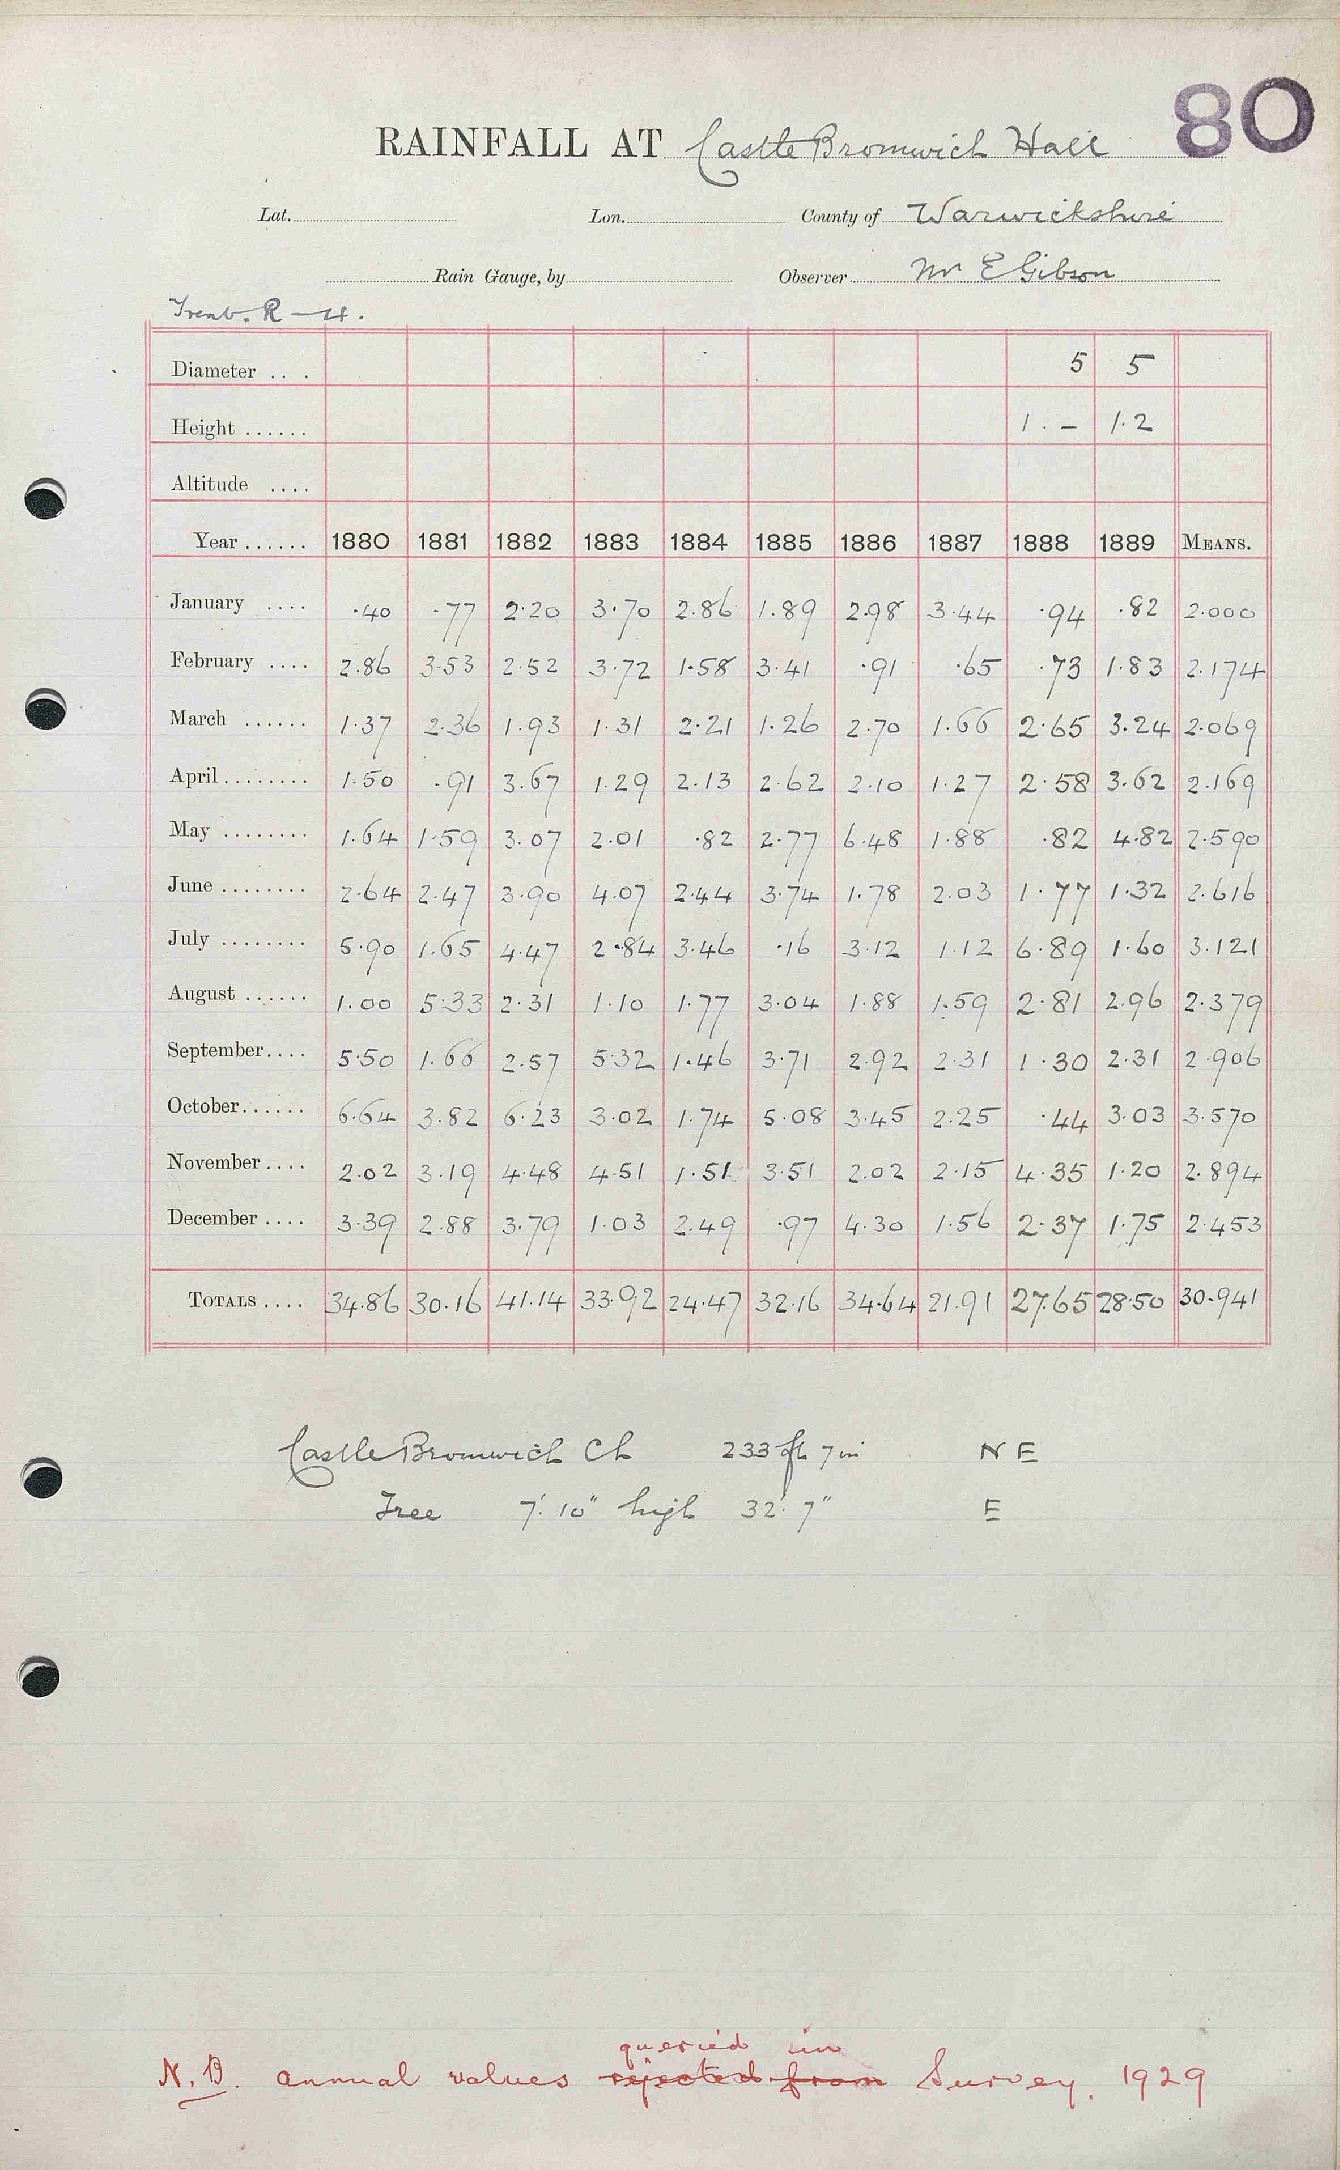 80
RAINFALL AT Castle Bromwich Hall
Lat. Lon. County of Warwickshire
Rain Gauge, by Observer Mr E Gibson
Trent. R — 4.
Diameter ... 5 5
Height ...... 1 . – 1.2
Altitude ....
Year ...... 1880 1881 1882 1883 1884 1885 1886 1887 1888 1889 MEANS.
January .... .40 .77 2.20 3.70 2.86 1.89 2.98 3.44 .94 .82 2.000
February .... 2.86 3.53 2.52 3.72 1.58 3.41 .91 .65 .73 1.83 2.174
March ...... 1.37 2.36 1.93 1.31 2.21 1.26 2.70 1.66 2.65 3.24 2.069
April ........ 1.50 .91 3.67 1.29 2.13 2.62 2.10 1.27 2.58 3.62 2.169
May ........ 1.64 1.59 3.07 2.01 .82 2.77 6.48 1.88 .82 4.82 2.590
June ........ 2.64 2.47 3.90 4.07 2.44 3.74 1.78 2.03 1.77 1.32 2.616
July ........ 5.90 1.65 4.47 2.84 3.46 .16 3.12 1.12 6.89 1.60 3.121
August ...... 1.00 5.33 2.31 1.10 1.77 3.04 1.88 1.59 2.81 2.96 2.379
September.... 5.50 1.66 2.57 5.32 1.46 3.71 2.92 2.31 1.30 2.31 2.906
October...... 6.64 3.82 6.23 3.02 1.74 5.08 3.45 2.25 .44 3.03 3.570
November.... 2.02 3.19 4.48 4.51 1.51 3.51 2.02 2.15 4.35 1.20 2.894
December .... 3.39 2.88 3.79 1.03 2.49 .97 4.30 1.56 2.37 1.75 2.453
TOTALS .... 34.86 30.16 41.14 33.92 24.47 32.16 34.64 21.91 27.65 28.50 30.941
Castle Bromwich Ch 233 ft 7 in N E
Tree 7' 10" high 32' 7" E
queried in
N.B. annual values rejected from Survey. 1929